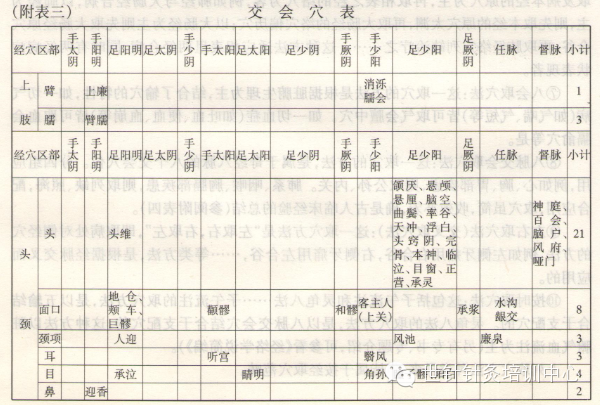 (附表三) 交会穴表
经穴区部 手太阴 手阳明 足阳明 足太阴 手少阴 手太阳 足太阳 足少阴 手厥阴 手少阳 足少阳 足厥阴 任脉 督脉 小计
上肢 臂 上廉 消泺 1
臑 臂臑 臑会 3
经穴区部 手太阴 手阳明 足阳明 足太阴 手少阴 手太阳 足太阳 足少阴 手厥阴 手少阳 足少阳 足厥阴 任脉 督脉 小计
头 头 头维 21
颔厌、悬颅、
悬厘、脑空、
曲鬓、率谷、
天冲、浮白、
头窍阴、完
骨、本神、临
泣、目窗、正
营、承灵
神庭、
百会、
脑户、
风府、
哑门
颈 面口 地仓、颊车、巨髎 颧髎 和髎 客主人(上关) 承浆 水沟 龈交 8
颈项 人迎 风池 廉泉 3
耳 听宫 翳风 3
目 承泣 睛明 角孙 4
鼻 迎香 2
针灸培训中心